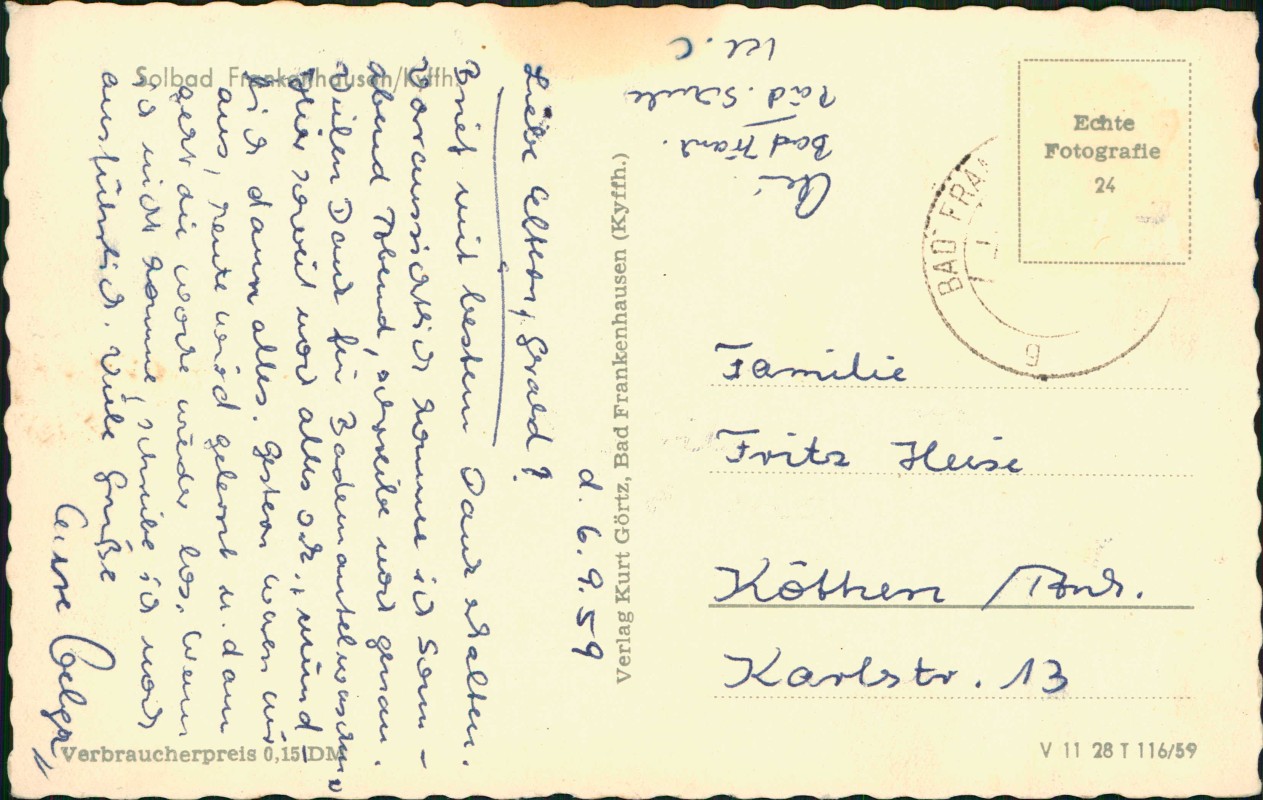 Solbad Frankenhausen/Kyffh.
d. 6.9.59
Liebe Eltern, Grald!
Brief mit bestem Dank erhalten.
Voraussichtlich komme ich Sonn-
abend Abend, schreibe noch genau.
Vielen Dank für Bademantel waschen
hier soweit noch alles ok, münd-
lich dann alles. Gestern waren wir
aus, heute wird gelernt u. dann
geht die Woche wieder los. Wenn
ich nicht komme, schreibe ich noch
ausführlich. Viele Grüße
Euer
Verbraucherpreis 0,15 DM
Verlag Kurt Görtz, Bad Frankenhausen (Kyffh.)
Bad Frank.
Päd. Schule
Kl. C
Echte
Fotografie
24
BAD FRA
g
Familie
Fritz Heise
Köthen / Anh.
Karlstr. 13
V 11 28 T 116/59